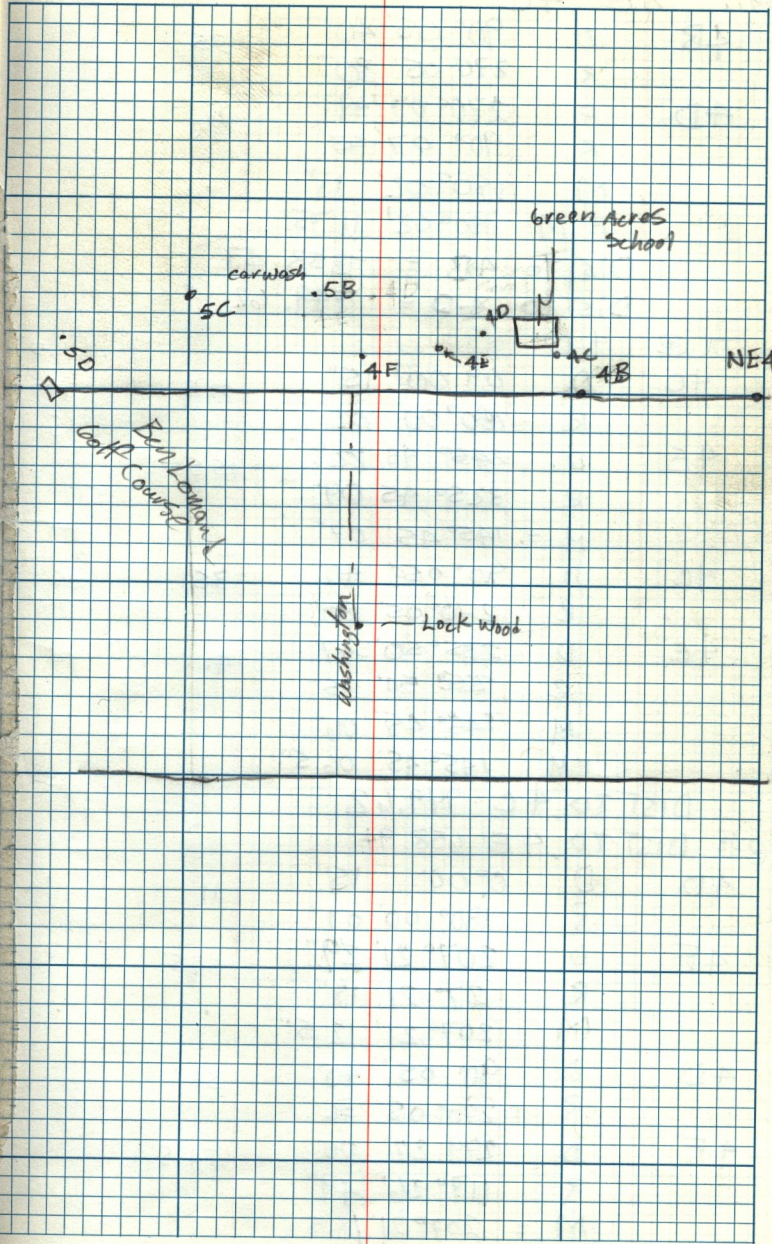 Green Acres
School
carwash
.5B
5C
4D
.5D
4E
4C
4F
4B
NE4
Ben Lomand
Golf Course
Washington
Lock Wood